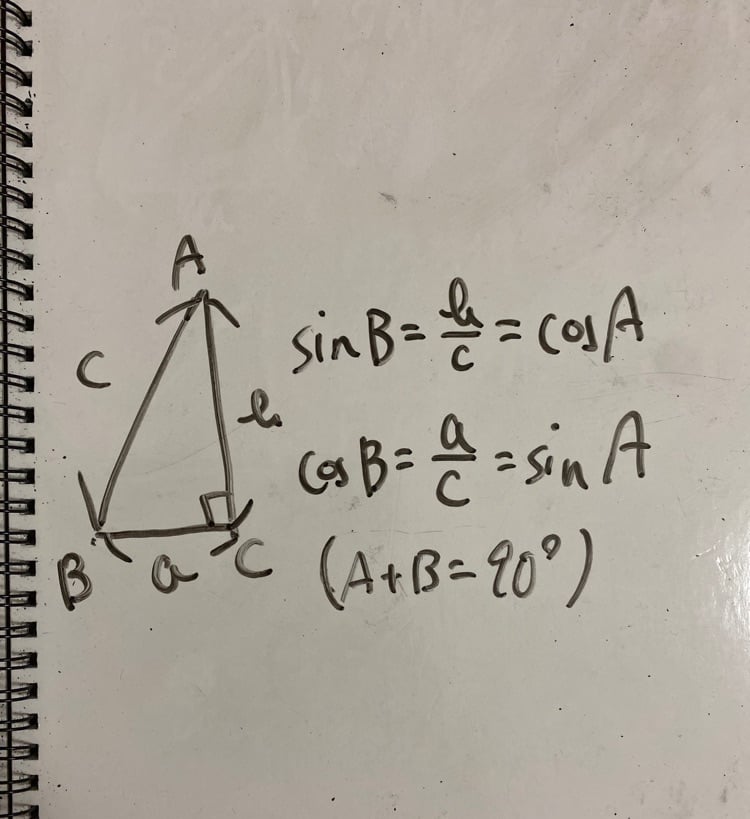 A
C
b
B
a
C
sinB = b/c = cosA
cosB = a/c = sinA
(A+B=90°)